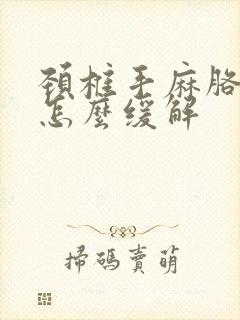 頚椎手麻胳
怎麼缓解
掃碼賣萌